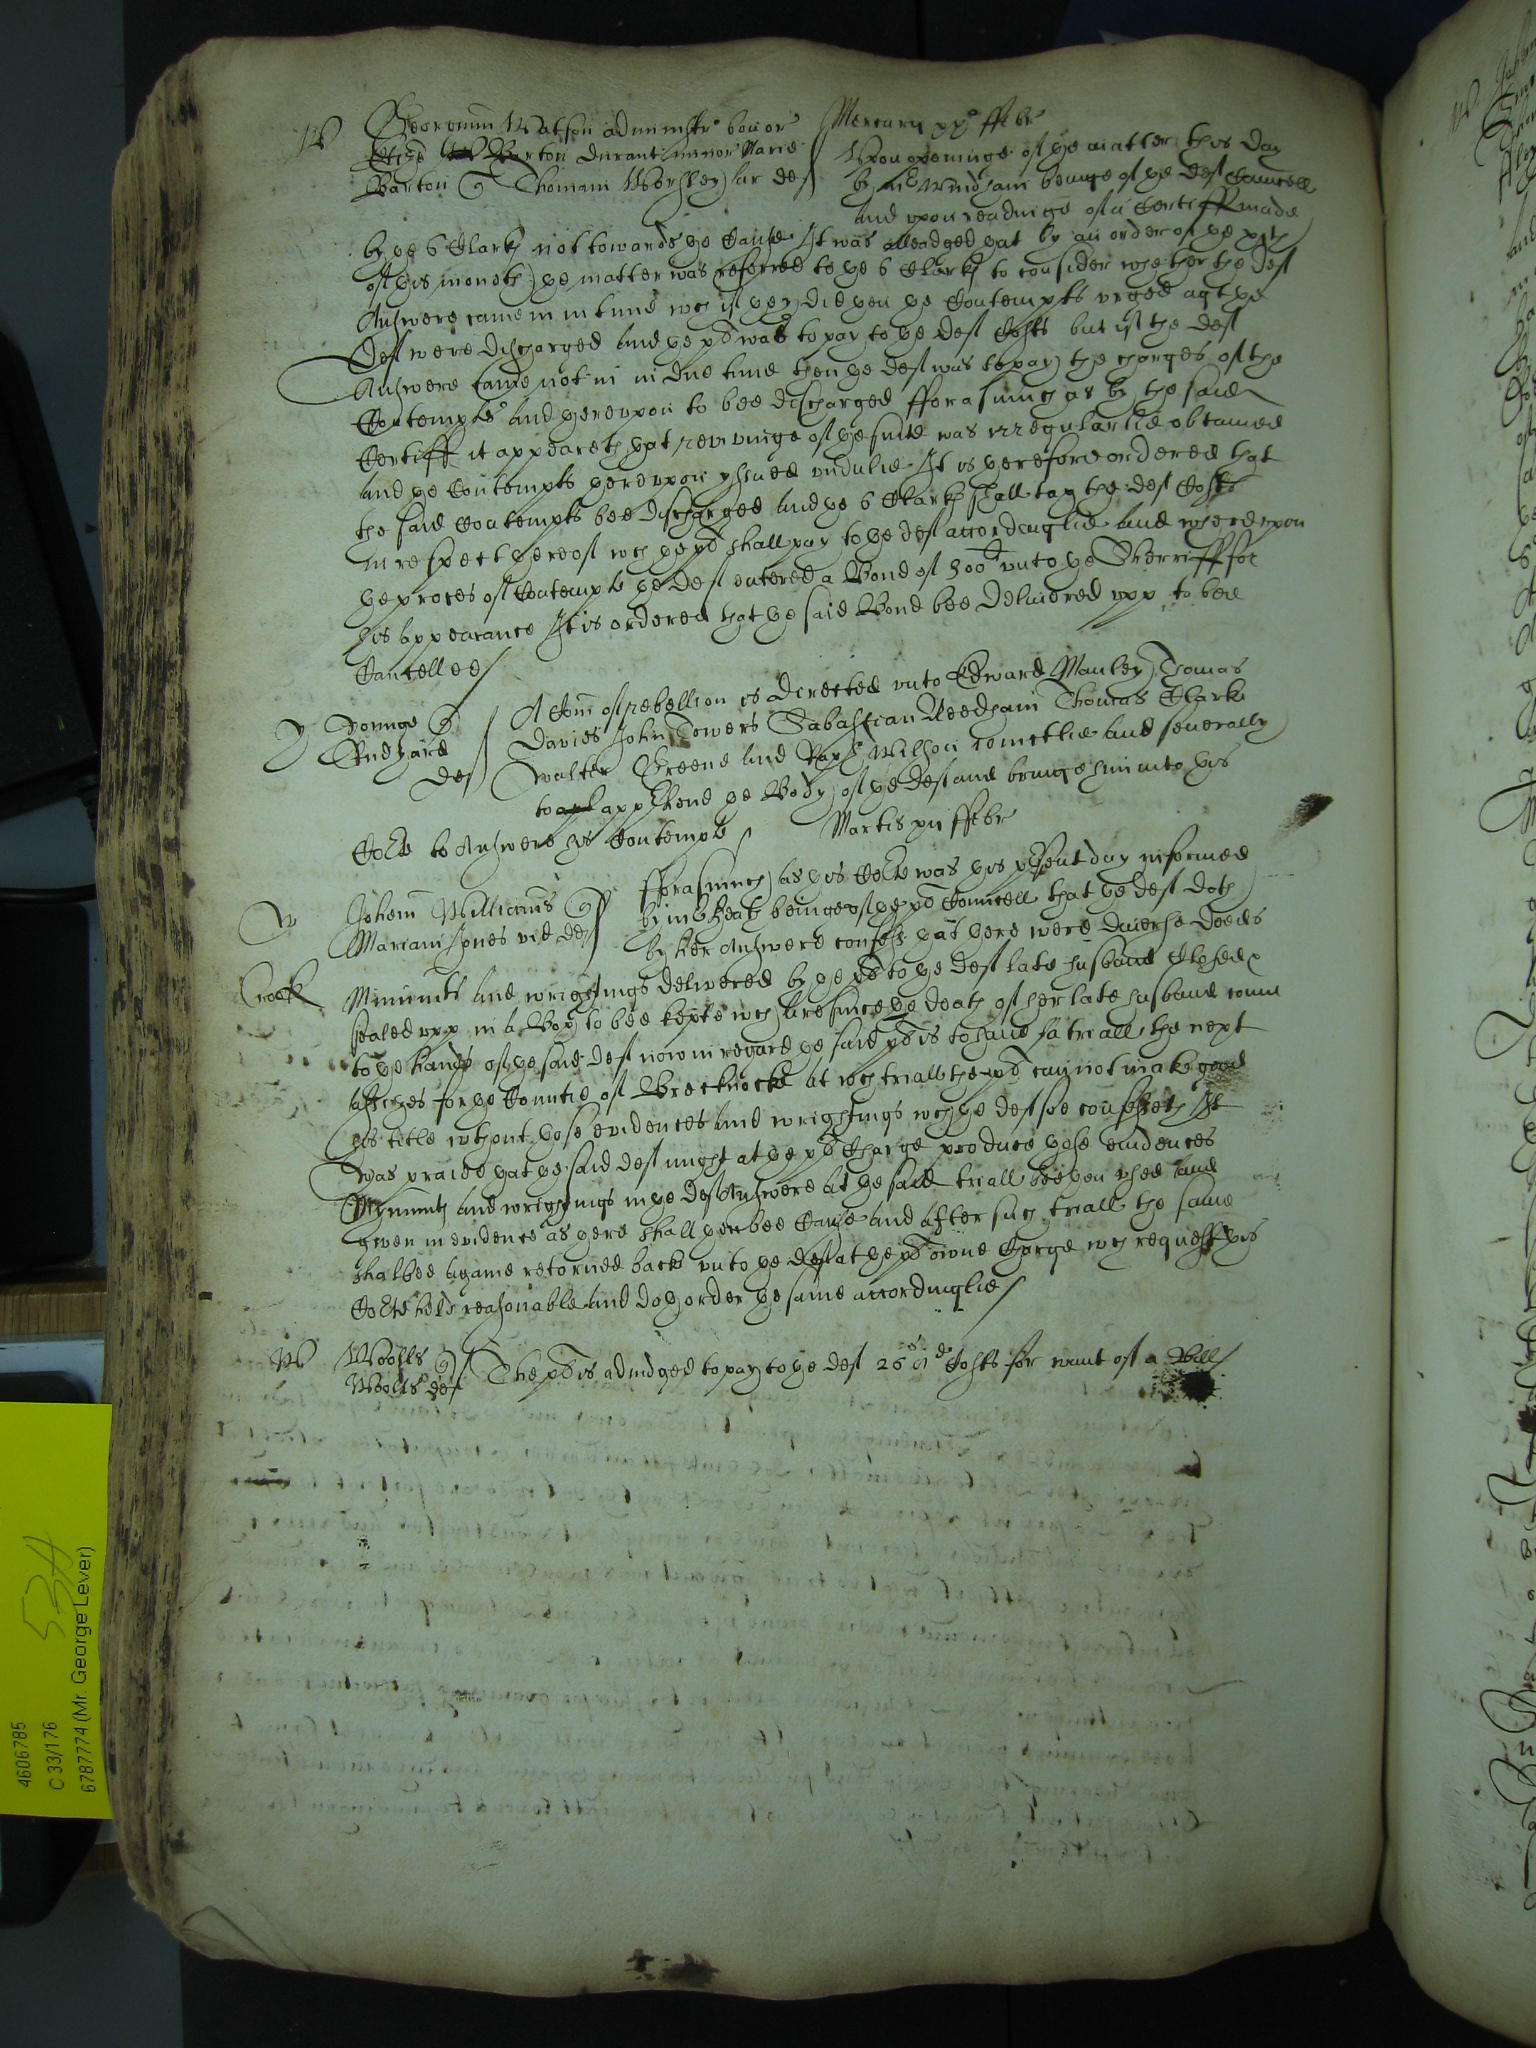 W Georgium Watson administr bonor Mercurij xxo ffebr
Barton durant minor Marie Vpon openinge of ye matter this day
Barton Q Thomam Worsley ar def by mr Windham beinge of ye def Councell
and vpon readinge of a Certiff made
by ye 6 Clarks not towards ye Cause It was alleadged yat by an order of ye
of this moneth ye matter was referred to ye 6 Clarks to consider whether the def
Answere came in in time wch if yey did yen ye Contempts vrged agt ye
def were discharged and ye plt was to pay to ye def Costs but if the def
Answere came not in in due time then ye def was to pay the charges of the
Contempts and yerevpon to bee discharged fforasmuch as by the said
Certiff it appeareth yat revivinge of ye suite was irregularlie obtained
and ye Contempts yerevpon yssued vndulie It is yerefore ordered that
the said Contempts bee discharged and ye 6 Clarks shall tax the def Costs
in respect yereof wch ye plt shall pay to ye def accordinglie and wherevpon
ye proces of Contempts ye def entered a Bond of 300l vnto ye Sherriff for
his appearance It is ordered that ye said Bond bee delivered vpp to bee
Cancelled
Y Yonnge Q A Com of rebellion is directed vnto Edward Manley Thomas
Rudyard Davies John Towers Sabastian Needham Thomas Clark
def Walter Greene and Raph Wilson iointlie and severally
to apprhend ye Body of ye def and bringe him into this
Corte to Answere his Contempts Martis ffebr
W Johem Williams Q fforasmuch as this Corte was this present day informed
Mariam Jones vid def by mr Heath beinge of ye plt Councell that ye def doth
by her Answere confesse yat there were diverse deeds
Crook Miniments and wrightings delivered by ye plt to ye def late husband
sealed vpp in a Box to bee kepte wch are since ye death of her late husband come
to ye hands of ye said def now in regard ye said plt is to have a triall the next
Assizes for ye Countie of Brecknocke at wch triall the plt cannot make good
his title without those evidences and wrightings wch ye def soe confesseth It
was praied yat ye said def might at ye plt Charge produce those evidences
Mynimts and wrightings in ye def Answere at ye said triall to be yen vsed and
given in evidence as yere shall yen bee Cause and after such triall the same
shalbee againe retorned back vnto ye def at ye plt owne Charge wch request this
Corte held reasonable and doth order ye same accordinglie
W Woolls Q The plt is adiudged to pay to ye def Costs for want of a Bill
Woolls def
4606785
C 33/176
6787774 (Mr. George Lever)